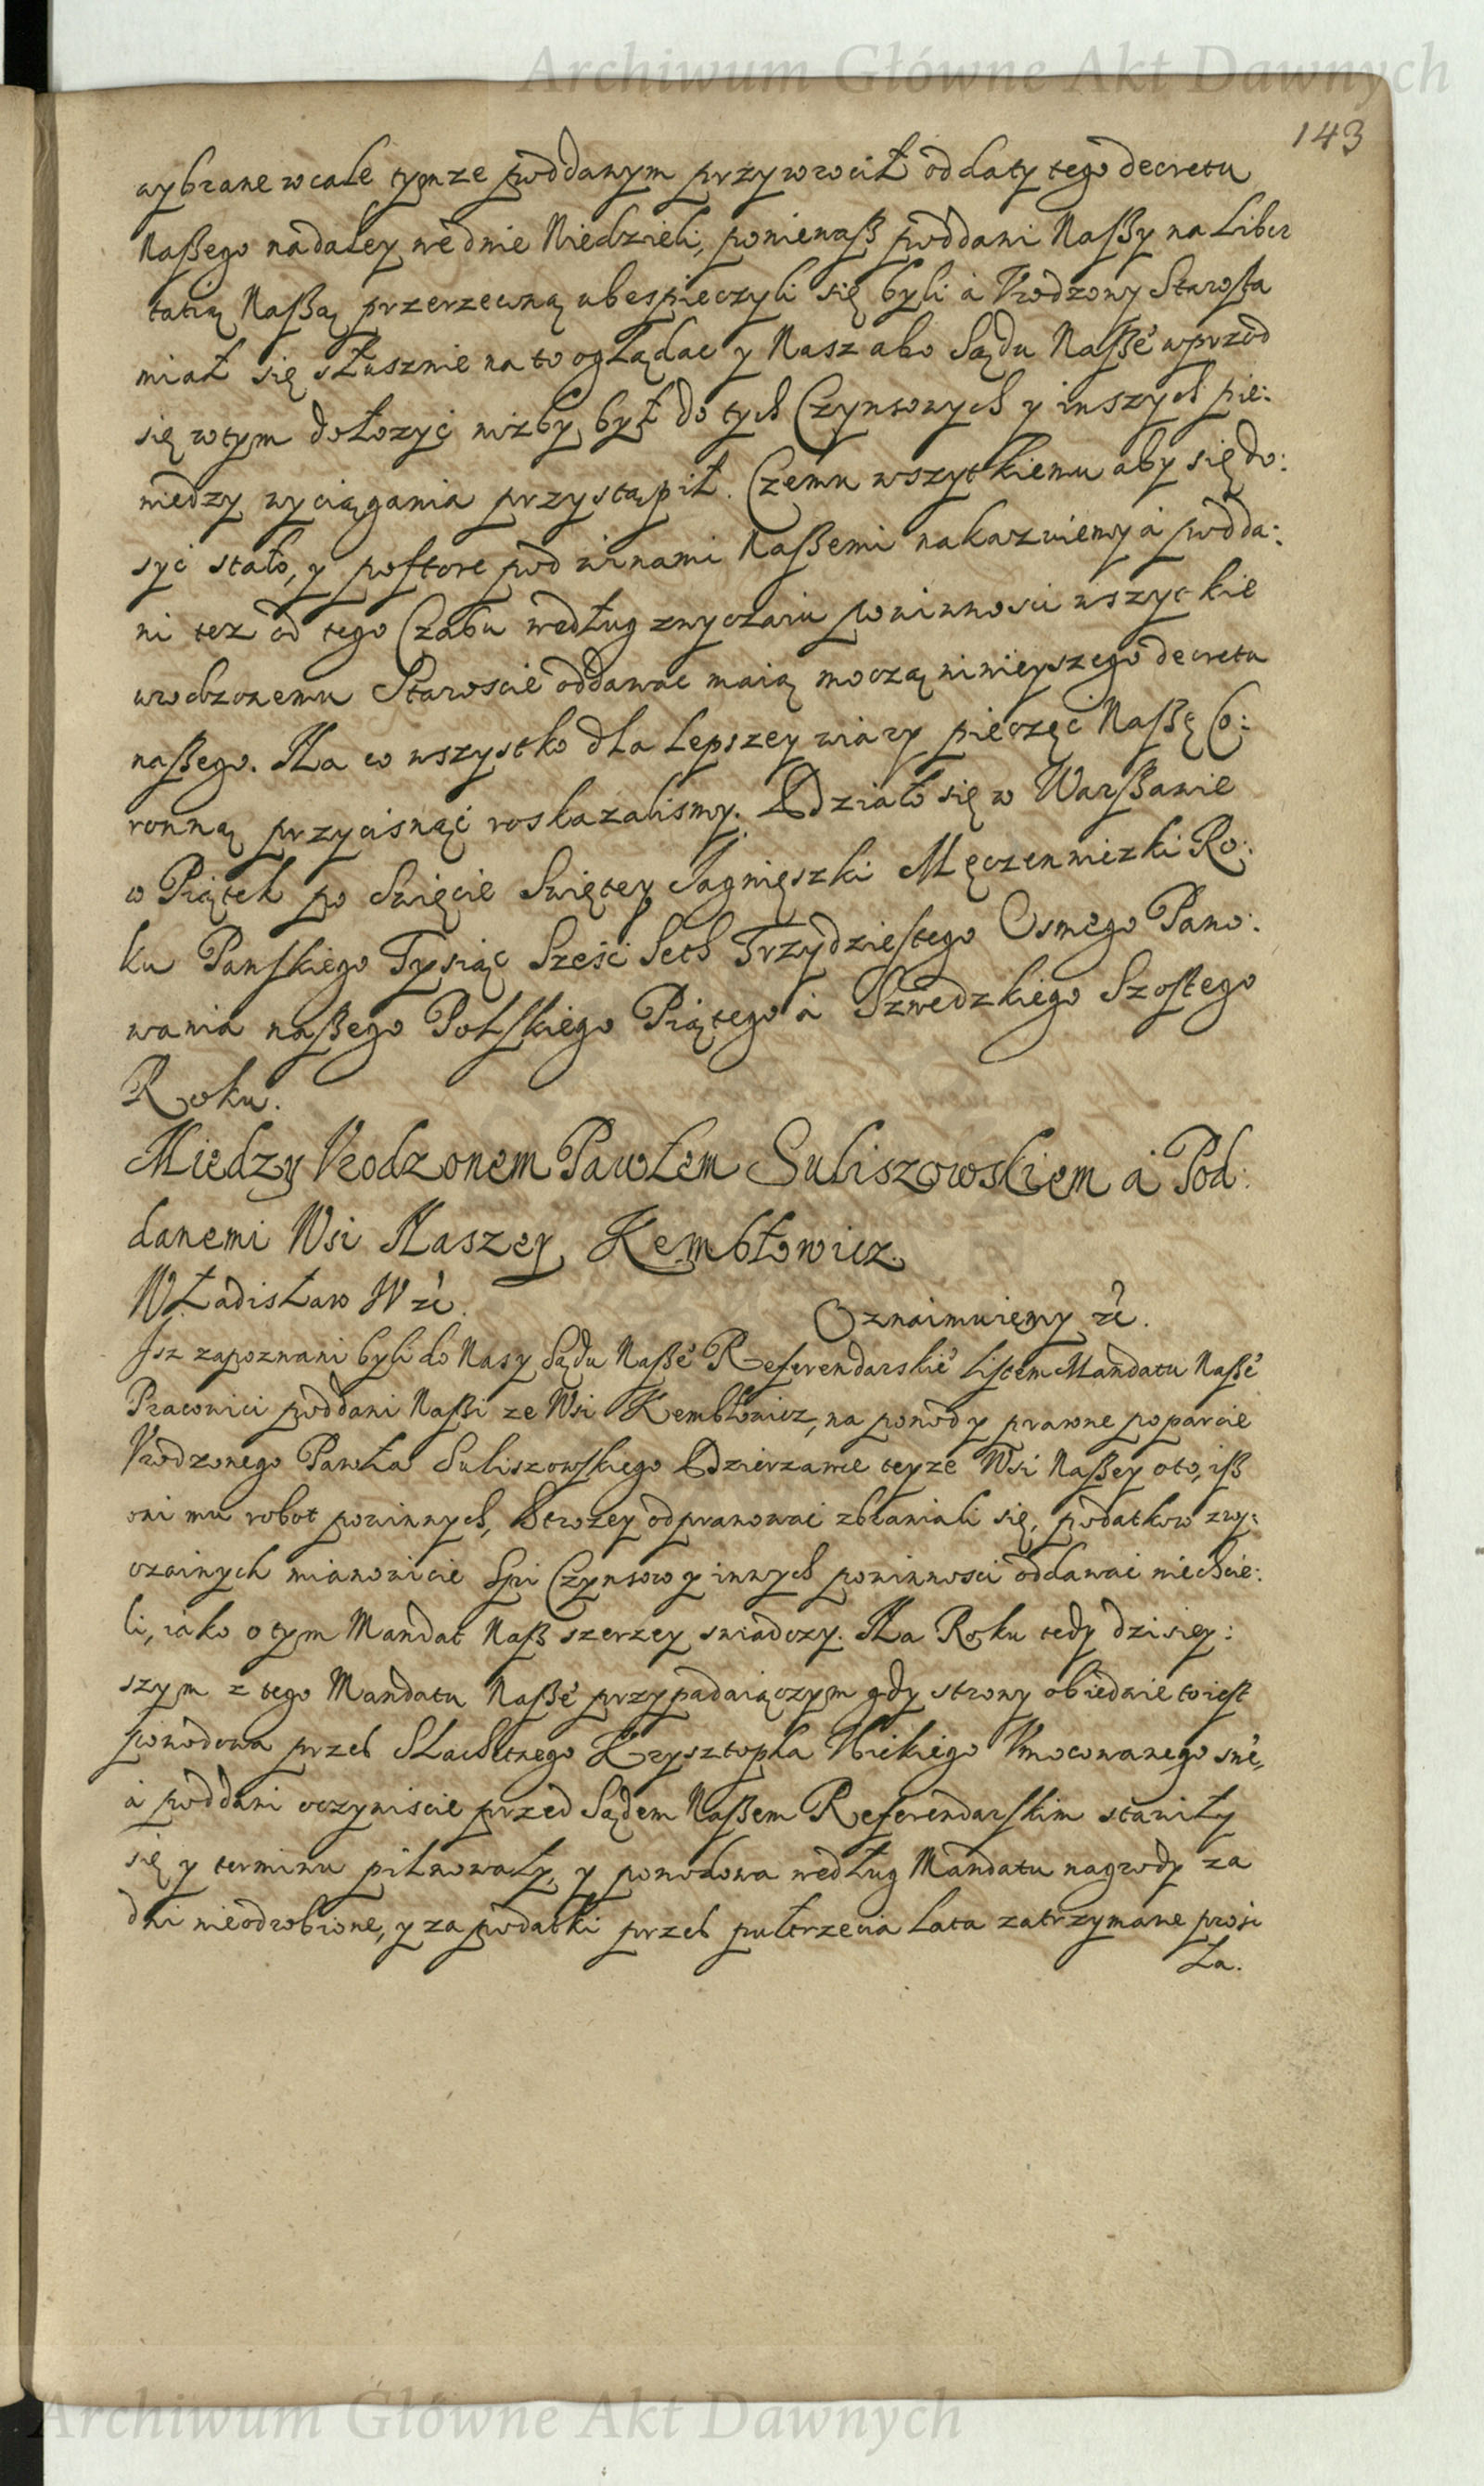 Archiwum Główne Akt Dawnych
143
wybrane wcale tymze poddanym przywrocił od daty tego decretu
Naßego nadaley we dwie Niedzieli, poniewaß poddani Naßy na Liber
tatią Naßą przerzeczną ubespieczyli się byli á Vrodzony Starosta
miał się słusznie na to oglądac y Nasz abo Sądu Naßé wprzod
się wtym dołozyć nizby był do tych Czynszowych y inszych pie:
niedzy wyciągania przystąpił. Czemu wszytkiemu aby się do:
syć stało, y poſtore pod winami Naßemi nakazuiemy á podda:
ni tez od tego Czaßu według zwyczaiu powinnosci wszytkie
urodzonemu Staroscie oddawac maią moczą ninieyszego decretu
naßego. Na co wszystko dla Lepszey wiary pieczęć Naßę Co:
ronną przycisnąć roskazalismy. Działo się w Warßawie
w Piątek po Swięcie Swiętey Jagnięszki Męczenniczki Ro:
ku Panſkiego Tysiąc Sześć Seth Trzydzieſtego Osmego Pano:
wania naßego Polſkiego Piątego á Szwedzkiego Szoſtego
Roku.
Miedzy Vrodzonem Pawłem Suliszowskiem á Pod:
danemi Wsi Naszey Kembłowicz.
Władisław IV zć. Oznaimuiemy zć.
Isz zapoznani byli do Nas y Sądu Naßé Referendarskié Listem Mandatu Naßé
Pracowici poddani Naßi ze Wsi Kembłowicz, na powod y prawne poparcie
Vrodzonego Pawła Suliszowſkiego Dzierzawce teyze Wsi Naßey oto, iß
oni mu robot powinnych, Strozey odprawować zbraniali się, podatkow zwy:
czainych mianowicie Spi Czynszow y innych powinnosci oddawać niechcie:
li, iáko o tym Mandat Naß szerzey swiadczy. Na Roku tedy dzisiey:
szym z tego Mandatu Naßé przypadaiączym gdy strony obiedwie to ieſt
powodowa przeb Slachetnego Krzysztopha Vmocowanego swé,
á poddani oczywiscie przed Sądem Naßem Referendarſkim stawiły
się y terminu pilnowały, y powodowa według Mandatu nagrody za
dni nieodrobione, y za podatki przeb pułtrzecia Lata zatrzymane prosi
ła.
Archiwum Główne Akt Dawnych